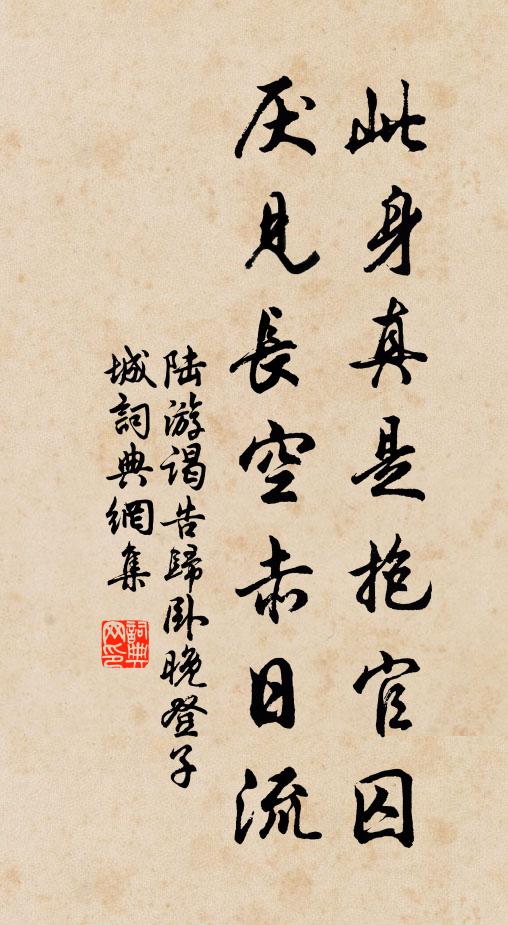 此身真是抱官囚
厌見長空赤日流
陆游谒告歸卧晚登子
城詞典網集
詞典网印